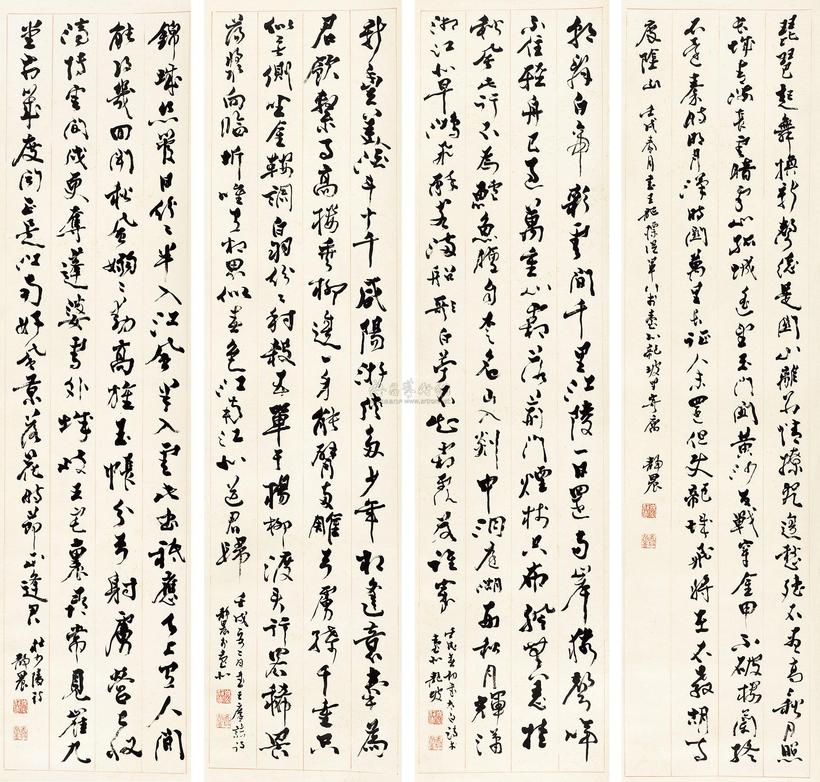 琵琶起舞換新聲總是關山離別情撩亂邊愁聽不盡高高秋月照
長城青海長雲暗雪山孤城遙望玉門關黃沙百戰穿金甲不破樓蘭終
不還秦時明月漢時關萬里長征人未還但使龍城飛將在不教胡馬
度陰山 壬戌春月書王龍標從軍行於臺北龍坡里寓廬 靜農
朝辭白帝彩雲間千里江陵一日還兩岸猿聲啼
不住輕舟已過萬重山霜落荊門煙樹空布帆無恙挂
秋風此行不為鱸魚膾自愛名山入剡中洞庭湖西秋月輝瀟
湘江北早鴻飛醉客滿船歌白苧不知霜露入秋衣
壬戌春初書太白詩於
臺北龍坡
新豐美酒斗十千咸陽游俠多少年相逢意氣為
君飲繫馬高樓垂柳邊一身能臂兩雕弓虜騎千重只
似無側坐金鞍調白羽紛紛射殺五單于楊柳渡頭行客稀罟
蕩槳向臨圻唯有相思似春色江南江北送君歸
壬戌二月書王摩詰詩
靜農於臺北
錦城絲管日紛紛半入江風半入雲此曲祇應天上有人間
能得幾回聞秋風嫋嫋動高旌玉帳分弓射虜營已收
滴博雲間戍更奪蓬婆雪外城岐王宅裏尋常見崔九
堂前幾度聞正是江南好風景落花時節又逢君
杜少陵詩
靜農